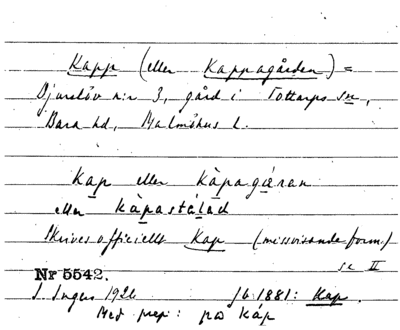 Kapp (eller Kappagården) =
Djurslöv n:r 3, gård i Tottarps sn,
Bara hd, Malmöhus l.
Kap eller kàpagæran
eller kàpastálad
Skrives officiellt Kap (missvisande form)
se II
Nr 5542.
I. Ingers 1926 jb 1881: Kap.
Med prep: på káp